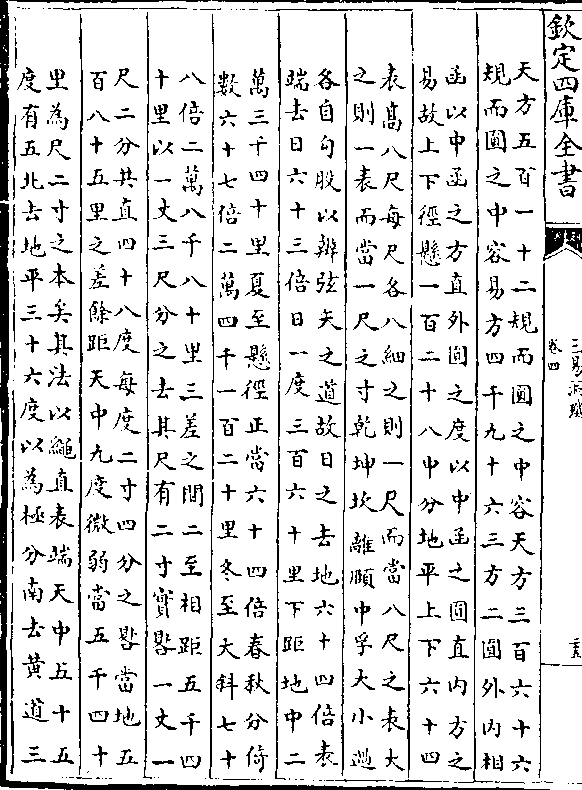 欽定四庫全書
三易洞璣
卷四
天方五百一十二規而圓之中容天方三百六十六
規而圓之中容易方四千九十六三方二圓外内相
函以中函之方直外圓之度以中函之圓直内方之
易故上下徑懸一百二十八中分地平上下六十四
表髙八尺每尺各八細之則一尺而當八尺之表大
之則一表而當一尺之寸乾坤坎離頤中孚大小過
各自句股以辨弦矢之道故日之去地六十四倍表
端去日六十三倍日一度三百六十里下距地中二
萬三千四十里夏至懸徑正當六十四倍春秋分倚
數六十七倍二萬四千一百二十里冬至大斜七十
八倍二萬八千八十里三差之間二至相距五千四
十里以一丈三尺分之去其尺有二寸實晷一丈一
尺二分共直四十八度每度二寸四分之晷當地五
百八十五里之差餘距天中九度微弱當五千四十
里為尺二寸之本矣其法以繩直表端天中五十五
度有五北去地平三十六度以為極分南去黄道三